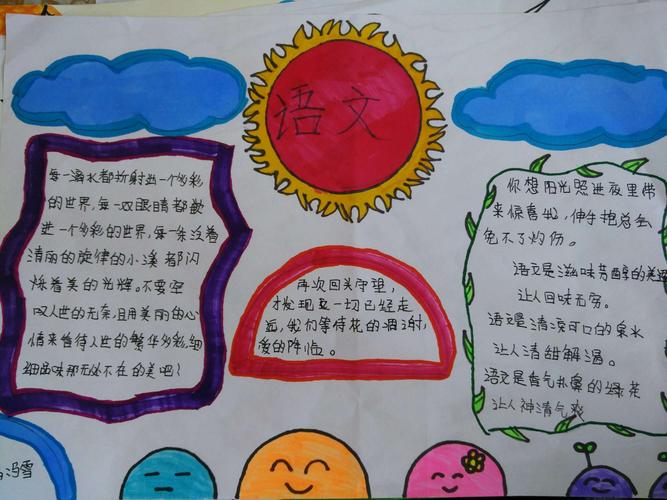 语文
每一滴水都折射出一个多彩
的世界,每一双眼睛都歙
进一个多彩的世界,每一条泛着
清丽的旋律的小溪都闪
烁着美的光辉。不要空
叹人世的无奈,且用美丽的心
情来看待人世的繁华多彩,细
细品味那无处不在的美吧!
再次回头守望,
才发现这一切已经走
远,我们等待花的凋谢,
爱的降临。
你想阳光照进夜里带
来惊喜哦,伸手抱总会
免不了灼伤。
语文是滋味芳醇的美酒
让人回味无穷。
语文是清凉可口的泉水
让人清甜解渴。
语文是香气扑鼻的绿花
让人神清气爽
冯雪